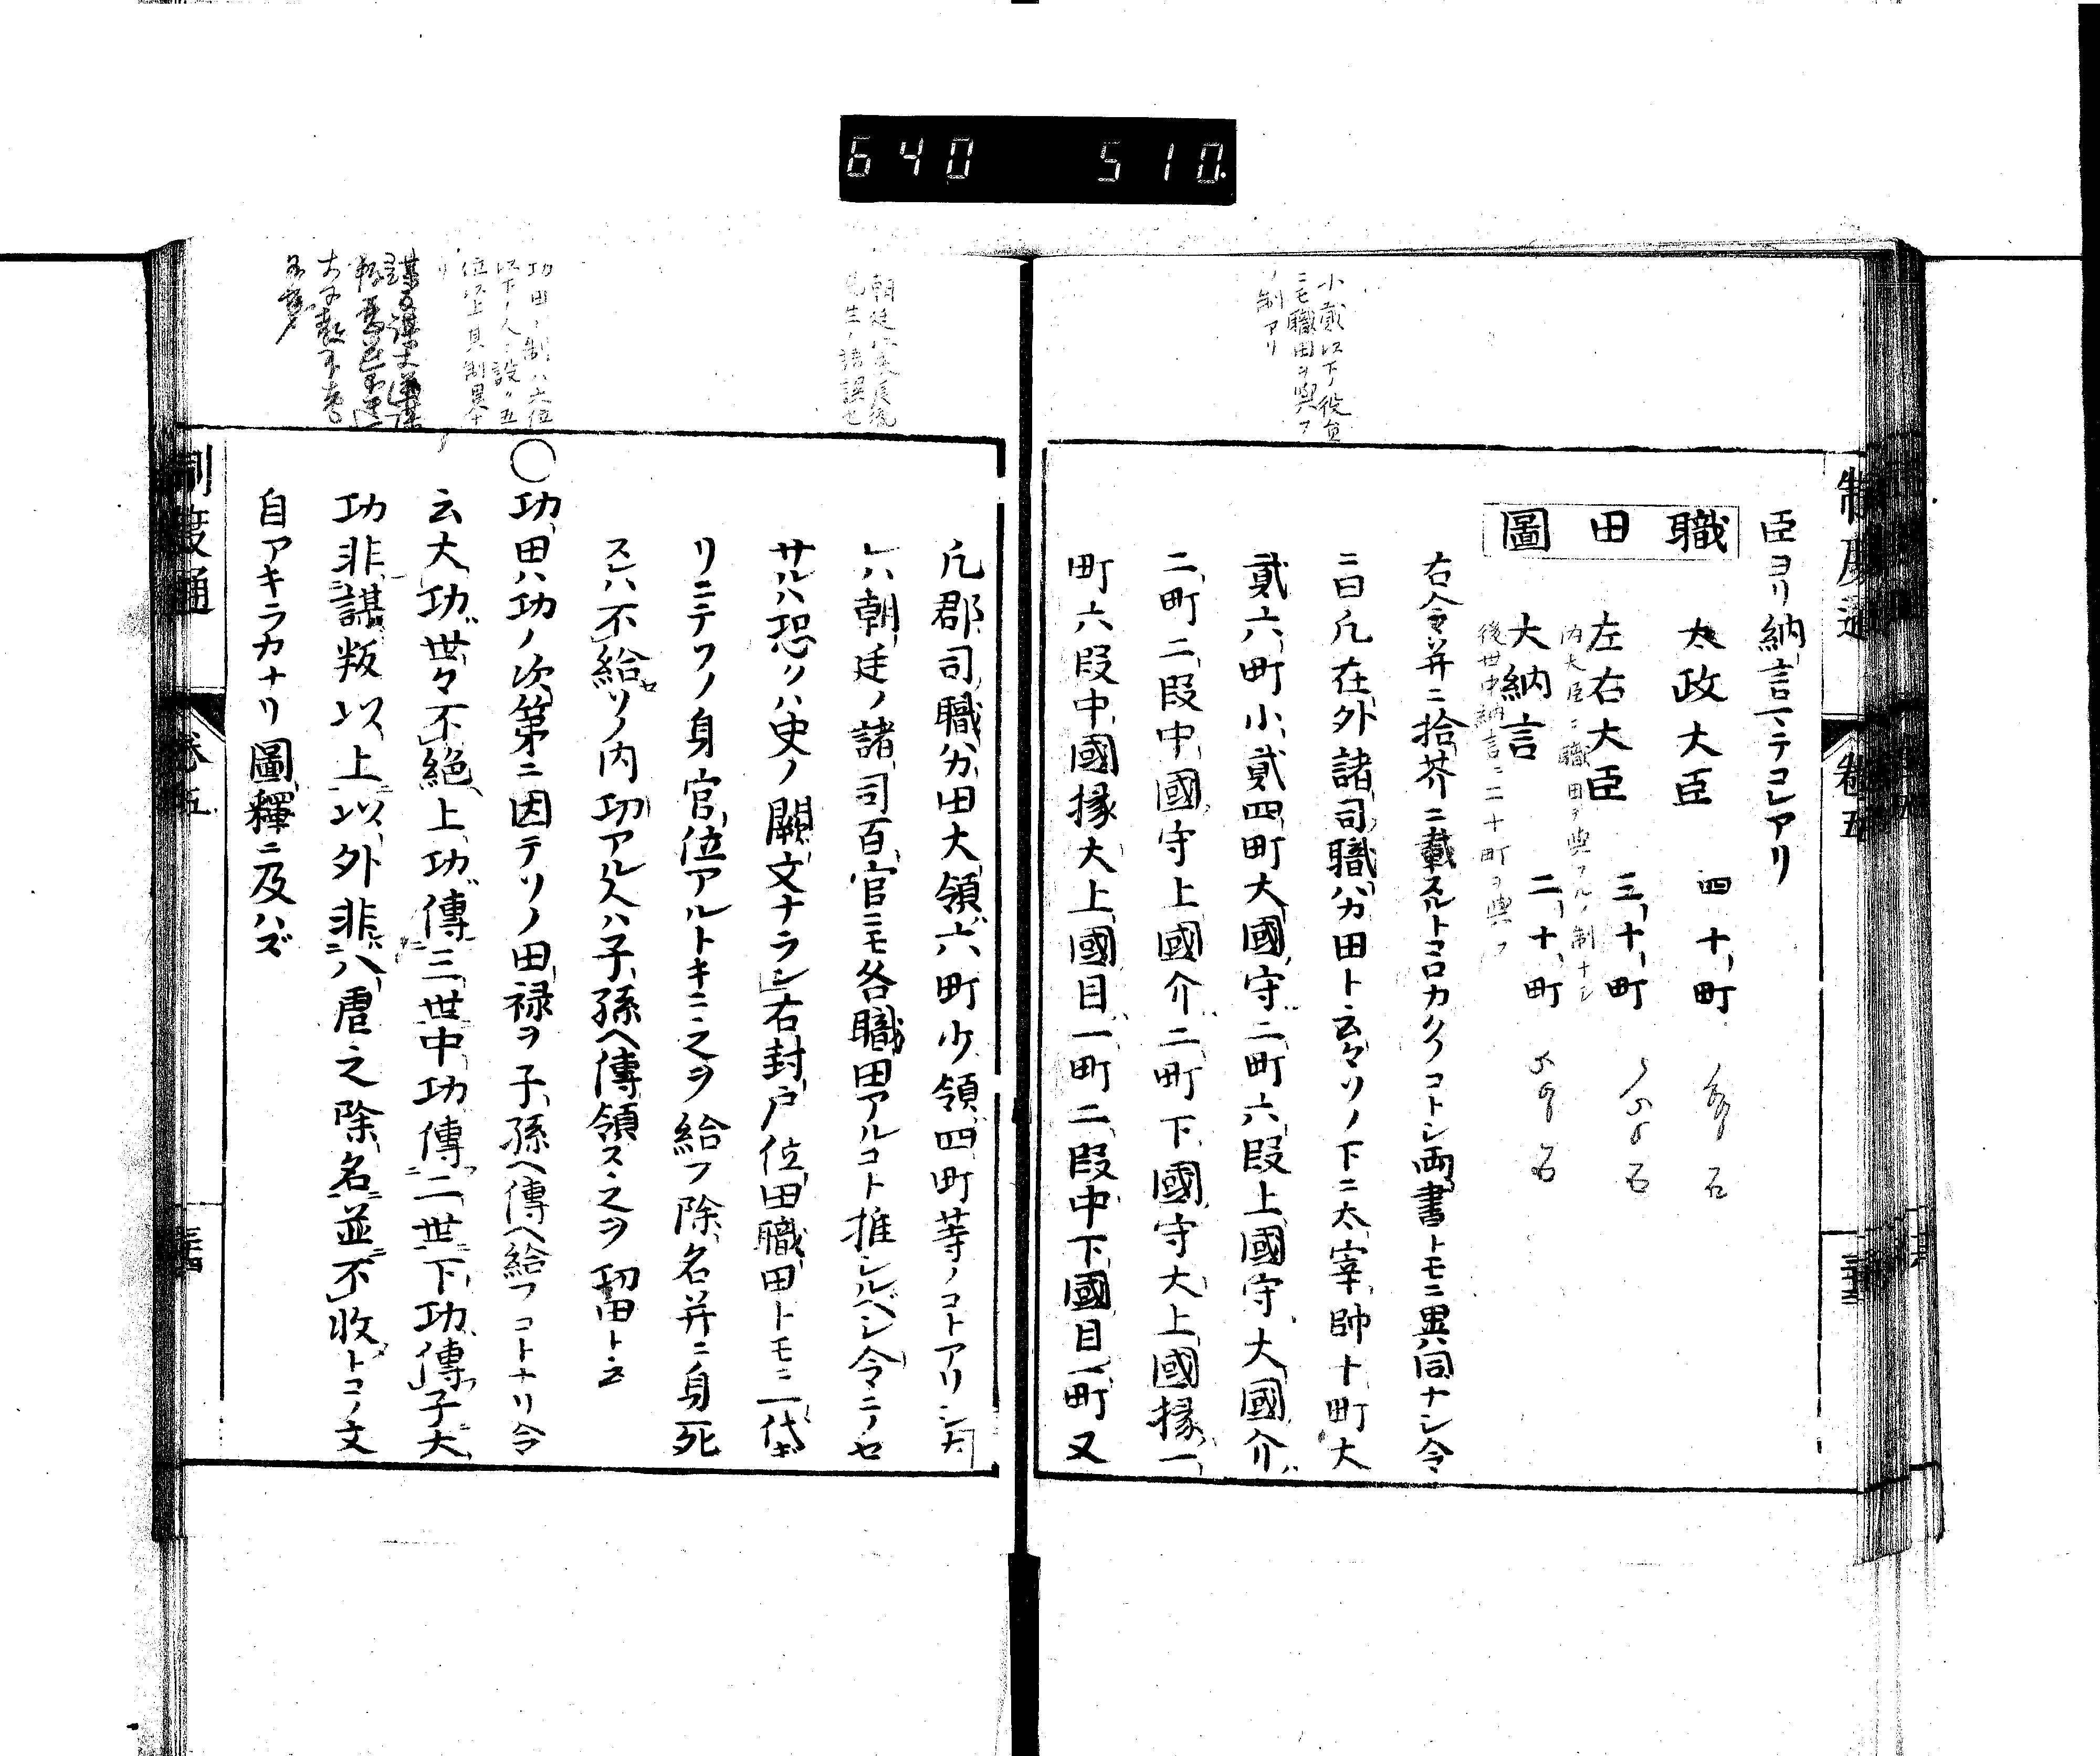 640 510.
制度通 卷五
小貳以下ノ役員
ニモ職田ヲ與フ
ノ制アリ
臣ヨリ納言ニテコレアリ
職田圖
太政大臣 四十町
左右大臣 三十町
内大臣ニ職田ヲ與フルノ制ナシ
大納言 二十町
後世中納言ニ二十町ヲ與フ
右令并ニ拾芥ニ載スルトコロカクノコトシ両書トモニ異同ナシ令
ニ曰凡在外諸司職分田ト云々ソノ下ニ太宰帥十町大
貳六町小貳四町大國守二町六段上國守大國介
二町二段中國守上國介二町下國守大上國掾一
町六段中國掾大上國目一町二段中下國目一町又
朝廷
先生ノ諸誤也
凡郡司職分田大領六町少領四町等ノコトアリシカ
レハ朝廷ノ諸司百官ニモ各職田アルコト推シルベシ令ニノセ
サルハ恐クハ史ノ闕文ナラン右封戸位田職田トモニ一代ギ
リニテソノ身官位アルトキニ之ヲ給フ除名并ニ身死
スレハ不給ソノ内功アル人ハ子孫ヘ傳領ス之ヲ功田ト云
功田ノ制ハ六位
以下ノ人ニ設ク五
位以上其制異ナ
リ
○功田ハ功ノ次第ニ因テソノ田禄ヲ子孫ヘ傳ヘ給フコトナリ令
云大功世々不絶上功傳三世中功傳二世下功傳子大
功非謀叛以上以外非八虐之除名並不收トコノ文
自アキラカナリ圖釋ニ及ハズ
制度通 卷五